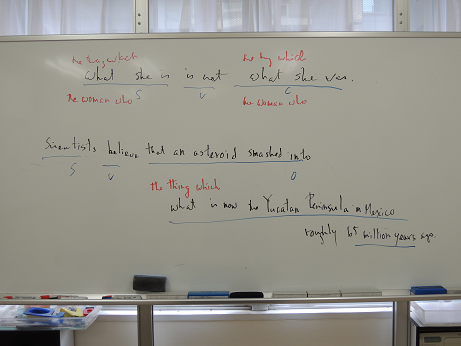 the thing which the thing which
What she is is not what she was.
S V C
the woman who the woman who
Scientists believe that an asteroid smashed into
S V O
the thing which
what is now the Yucatan Peninsula in Mexico
roughly 65 million years ago.